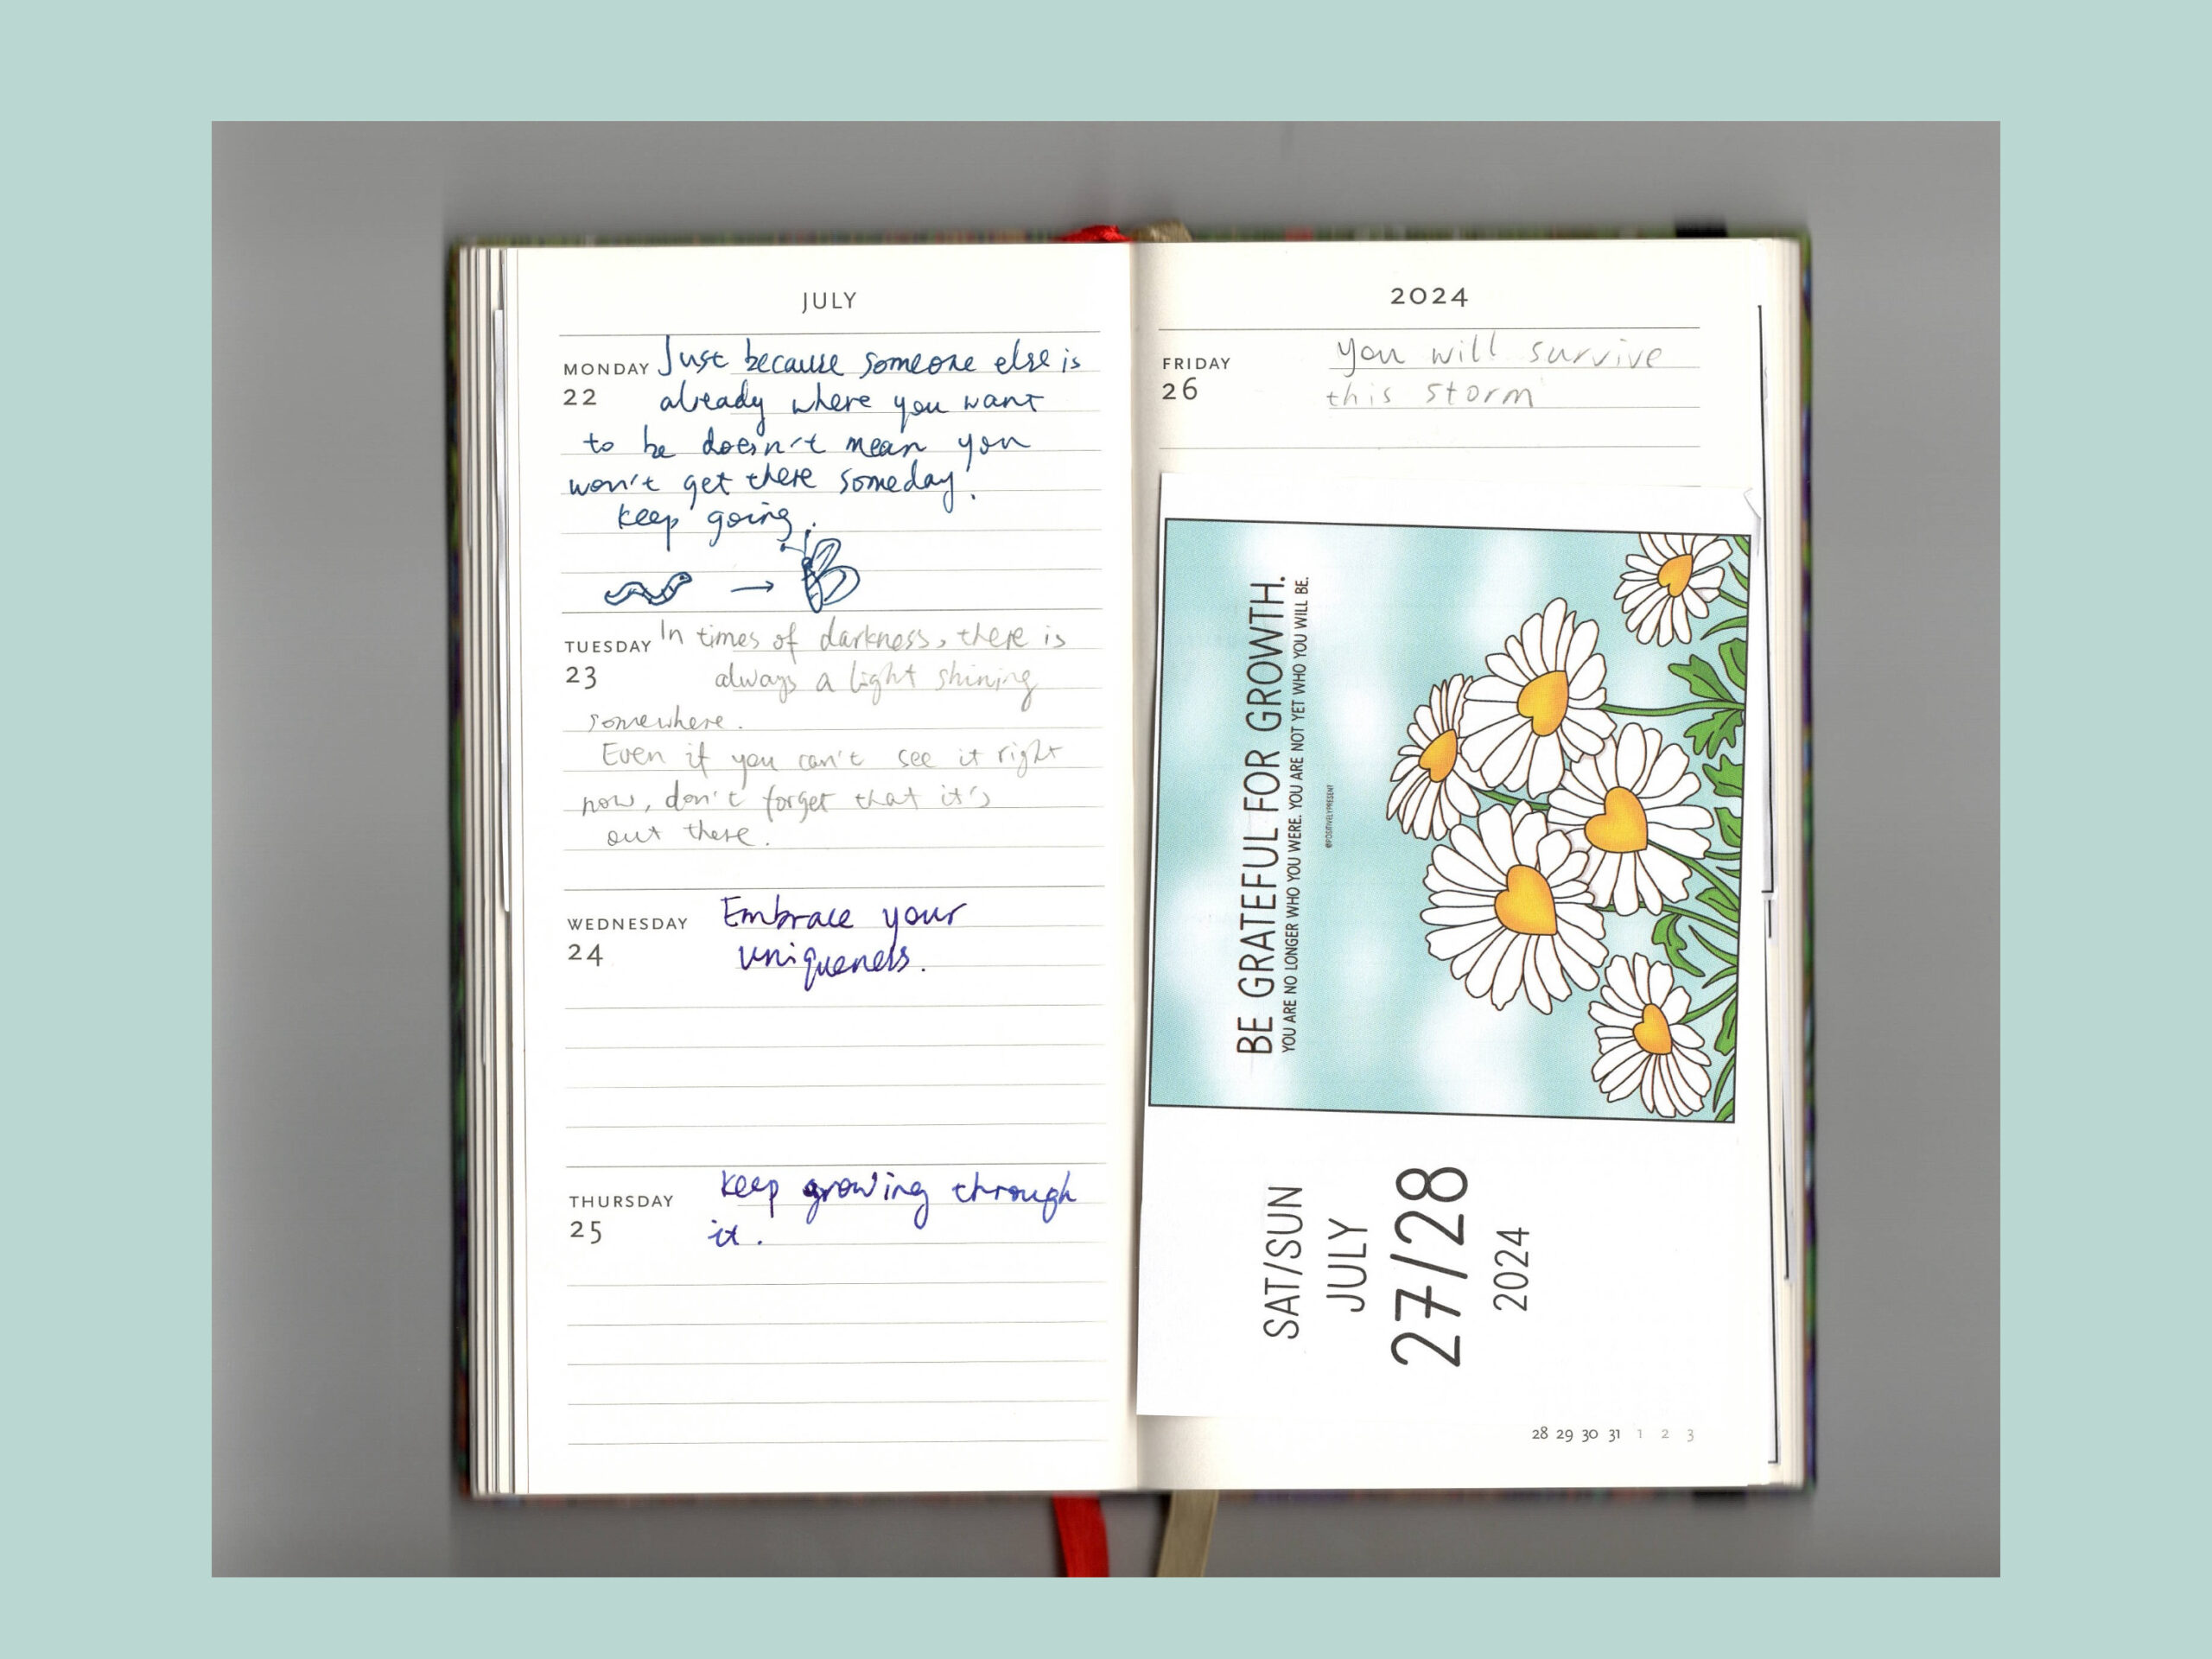 JULY
MONDAY
22
Just because someone else is
already where you want
to be doesn't mean you
won't get there someday!
keep going.
TUESDAY
23
In times of darkness, there is
always a light shining
somewhere.
Even if you can't see it right
now, don't forget that it's
out there.
WEDNESDAY
24
Embrace your
uniqueness.
THURSDAY
25
keep growing through
it.
2024
FRIDAY
26
you will survive
this storm
BE GRATEFUL FOR GROWTH.
YOU ARE NO LONGER WHO YOU WERE. YOU ARE NOT YET WHO YOU WILL BE.
@POSITIVELYPRESENT
SAT/SUN
JULY
27/28
2024
28 29 30 31 1 2 3